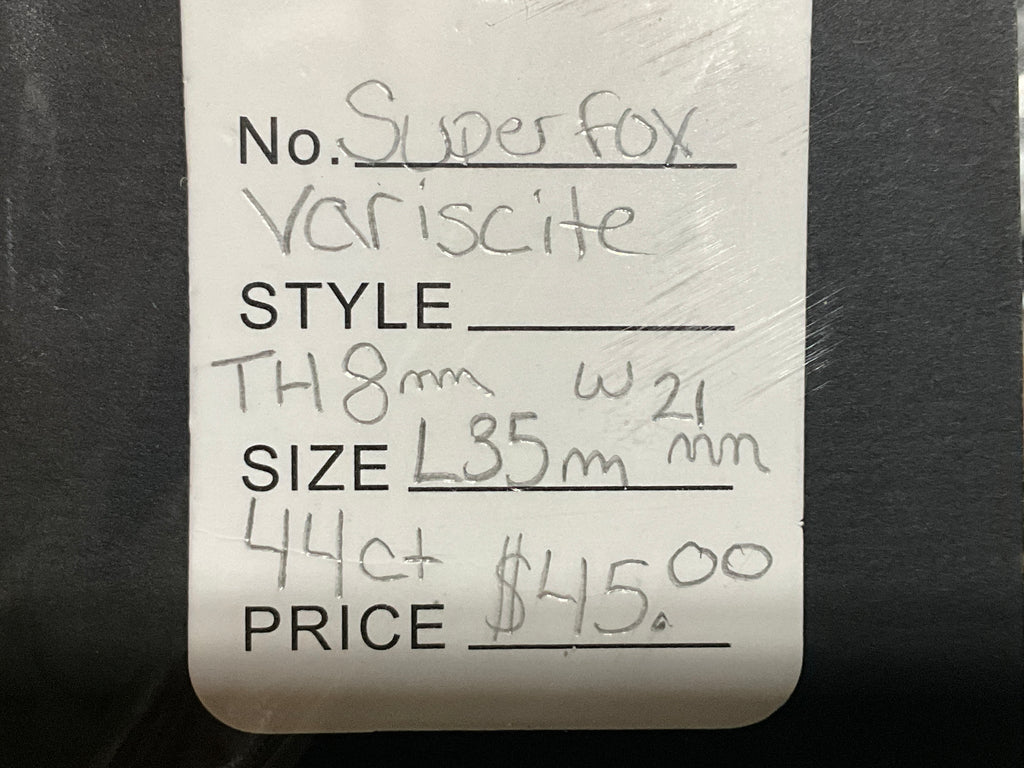 No. Super fox
Variscite
STYLE
TH 8mm W 21 mm
SIZE L35m
44ct
PRICE $45.00